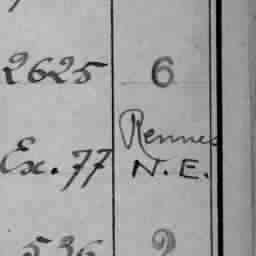 2625 6
Rennes
Ex. 77 N.E.
536 2